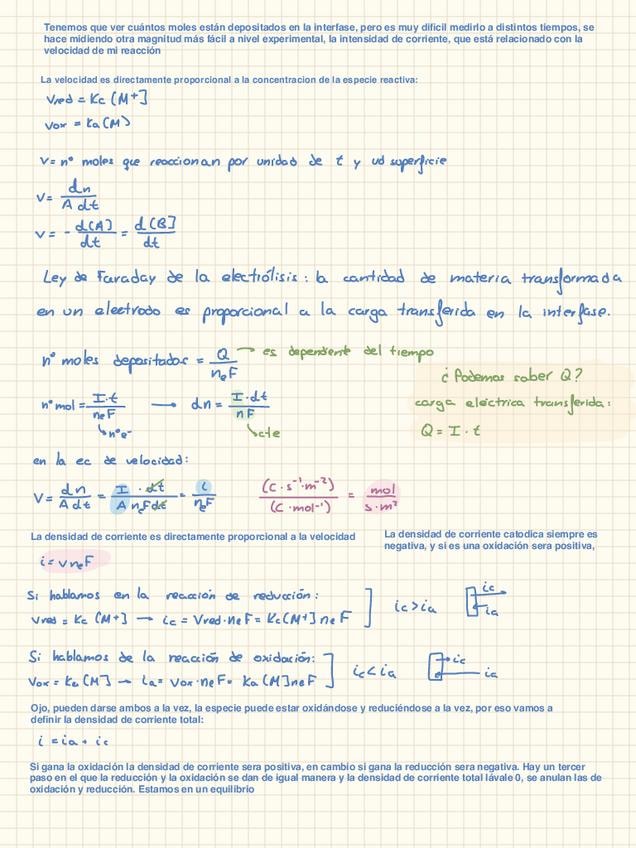 Tenemos que ver cuántos moles están depositados en la interfase, pero es muy dificil medirlo a distintos tiempos, se
hace midiendo otra magnitud más fácil a nivel experimental, la intensidad de corriente, que está relacionado con la
velocidad de mi reacción
La velocidad es directamente proporcional a la concentracion de la especie reactiva:
Vred = Kc [M+]
Vox = Ka [M]
V = nº moles que reaccionan por unidad de t y ud superficie
V = dn / A dt
V = - d[A] / dt = d[B] / dt
Ley de Faraday de la electrólisis: la cantidad de materia transformada
en un electrodo es proporcional a la carga transferida en la interfase.
nº moles depositados = Q / neF → es dependiente del tiempo
¿Podemos saber Q?
carga eléctrica transferida:
Q = I · t
nº mol = I·t / neF → dn = I·dt / nF
nºe- cte
en la ec de velocidad:
V = dn / A dt = I · dt / A neF dt = i / neF (C·s⁻¹·m⁻²) / (C·mol⁻¹) = mol / s·m²
La densidad de corriente es directamente proporcional a la velocidad
La densidad de corriente catodica siempre es
negativa, y si es una oxidación sera positiva,
i = v neF
Si hablamos en la reacción de reducción:
Vred = Kc [M+] → ic = Vred·neF = Kc[M+] neF
ic > ia
ic
ia
Si hablamos de la reacción de oxidación:
Vox = Ka [M] → ia = Vox·neF = Ka [M] neF
ic < ia
ic
ia
Ojo, pueden darse ambos a la vez, la especie puede estar oxidándose y reduciéndose a la vez, por eso vamos a
definir la densidad de corriente total:
i = ia + ic
Si gana la oxidación la densidad de corriente sera positiva, en cambio si gana la reducción sera negativa. Hay un tercer
paso en el que la reducción y la oxidación se dan de igual manera y la densidad de corriente total lávale 0, se anulan las de
oxidación y reducción. Estamos en un equilibrio